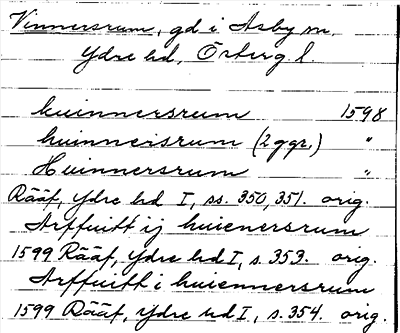 Vinnersrum, gd i Asby sn,
Ydre hd, Östergl.
huinnersrum 1598
huinnersrum (2 ggr.) "
Huinnersrum "
Rääf, Ydre hd I, ss. 350, 351. orig.
Arffuitt ij huienersrum
1599 Rääf, Ydre hd I, s. 353. orig.
Arffuitt i huiennersrum
1599 Rääf, Ydre hd I, s. 354. orig.